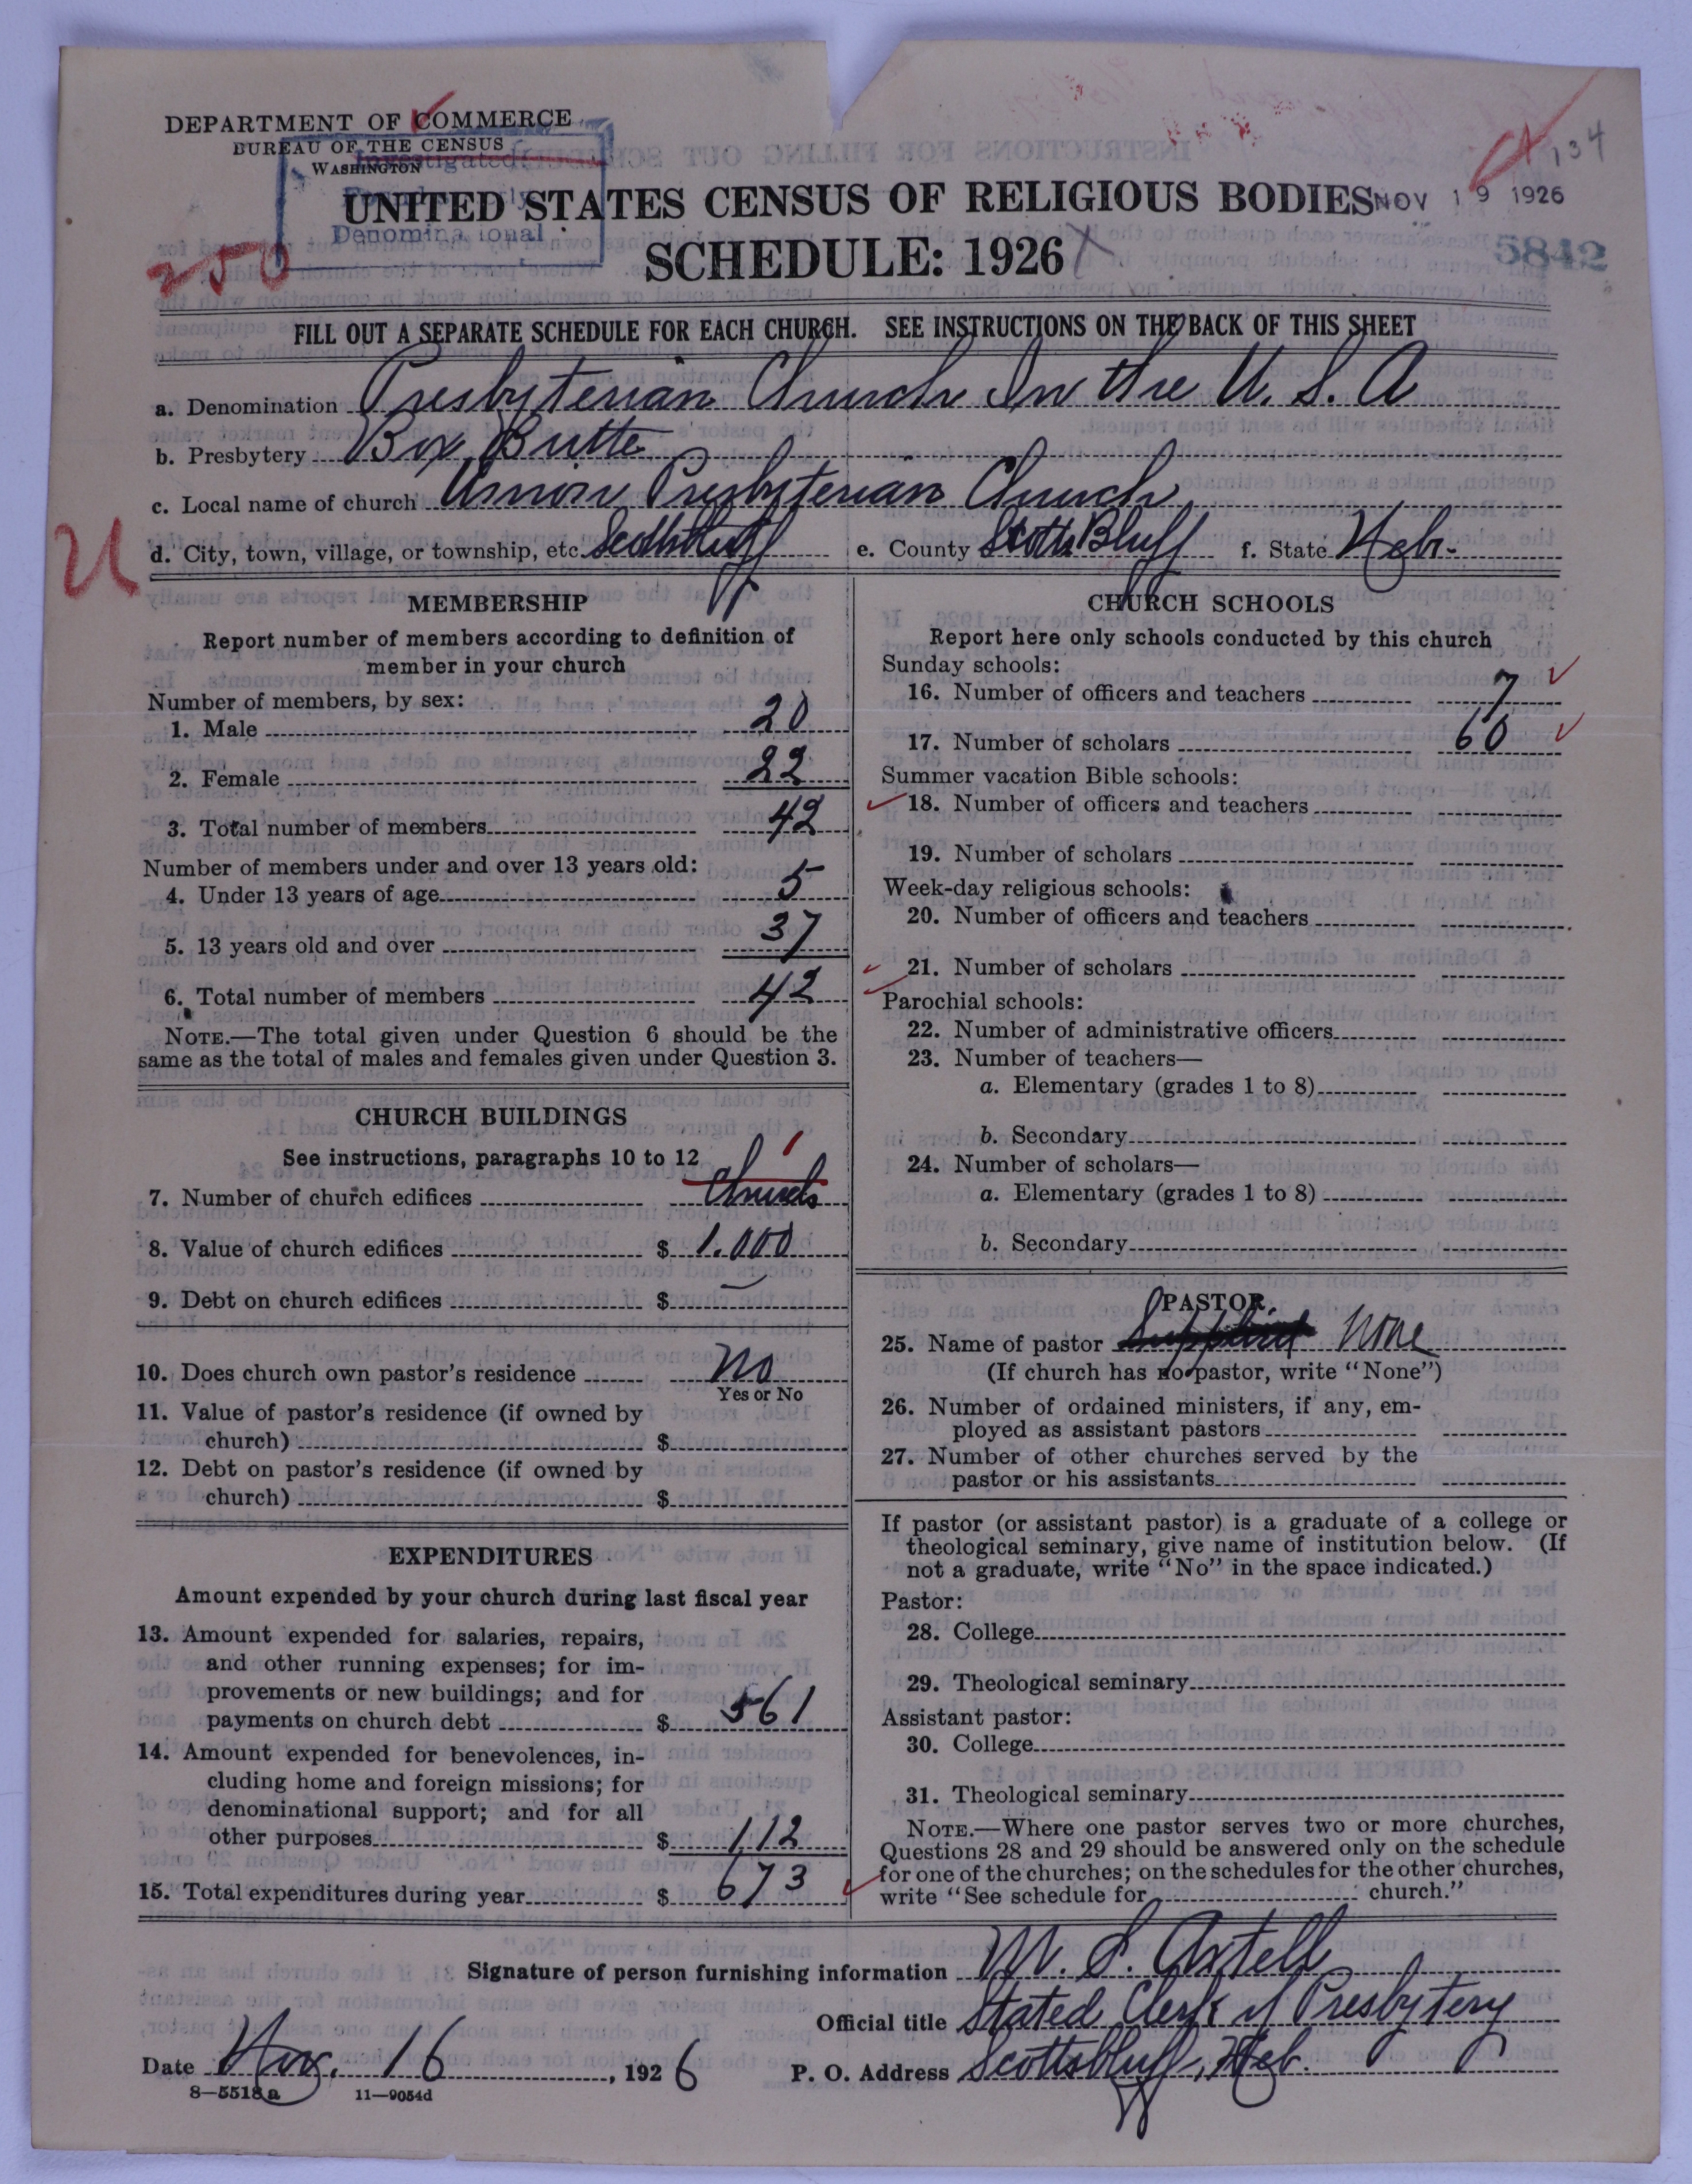 DEPARTMENT OF COMMERCE
BUREAU OF THE CENSUS
WASHINGTON
Investigated
Denominational
134
UNITED STATES CENSUS OF RELIGIOUS BODIES
NOV 19 1926
SCHEDULE: 1926
5842
250
FILL OUT A SEPARATE SCHEDULE FOR EACH CHURCH. SEE INSTRUCTIONS ON THE BACK OF THIS SHEET
a. Denomination Presbyterian Church In the U. S. A
b. Presbytery Box Butte
c. Local name of church Union Presbyterian Church
d. City, town, village, or township, etc. Scottsbluff e. County Scotts Bluff f. State Nebr.
U
MEMBERSHIP
Report number of members according to definition of
member in your church
Number of members, by sex:
1. Male 20
2. Female 22
3. Total number of members 42
Number of members under and over 13 years old:
4. Under 13 years of age 5
5. 13 years old and over 37
6. Total number of members 42
NOTE.—The total given under Question 6 should be the
same as the total of males and females given under Question 3.
CHURCH BUILDINGS
See instructions, paragraphs 10 to 12
7. Number of church edifices Church 1
8. Value of church edifices $ 1.000
9. Debt on church edifices $ —
10. Does church own pastor's residence No
Yes or No
11. Value of pastor's residence (if owned by
church) $
12. Debt on pastor's residence (if owned by
church) $
EXPENDITURES
Amount expended by your church during last fiscal year
13. Amount expended for salaries, repairs,
and other running expenses; for im-
provements or new buildings; and for
payments on church debt $ 561
14. Amount expended for benevolences, in-
cluding home and foreign missions; for
denominational support; and for all
other purposes $ 112
15. Total expenditures during year $ 673
CHURCH SCHOOLS
Report here only schools conducted by this church
Sunday schools:
16. Number of officers and teachers 7
17. Number of scholars 60
Summer vacation Bible schools:
18. Number of officers and teachers
19. Number of scholars
Week-day religious schools:
20. Number of officers and teachers
21. Number of scholars
Parochial schools:
22. Number of administrative officers
23. Number of teachers—
a. Elementary (grades 1 to 8)
b. Secondary
24. Number of scholars—
a. Elementary (grades 1 to 8)
b. Secondary
PASTOR
25. Name of pastor Supplied None
(If church has no pastor, write "None")
26. Number of ordained ministers, if any, em-
ployed as assistant pastors
27. Number of other churches served by the
pastor or his assistants
If pastor (or assistant pastor) is a graduate of a college or
theological seminary, give name of institution below. (If
not a graduate, write "No" in the space indicated.)
Pastor:
28. College
29. Theological seminary
Assistant pastor:
30. College
31. Theological seminary
NOTE.—Where one pastor serves two or more churches,
Questions 28 and 29 should be answered only on the schedule
for one of the churches; on the schedules for the other churches,
write "See schedule for church."
Signature of person furnishing information M. S. Axtell
Official title Stated Clerk of Presbytery
Date Nov. 16, 1926 P. O. Address Scottsbluff, Neb.
8—5518a 11—9054d